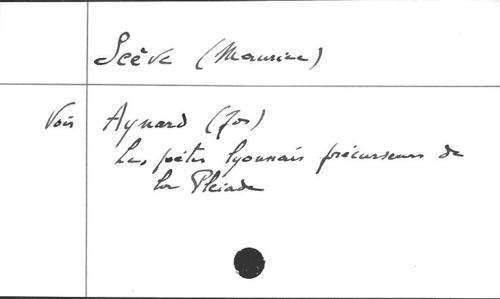 Scève (Maurice)
Voir Aynard (Jos)
Les poètes lyonnais précurseurs de
la Pléiade